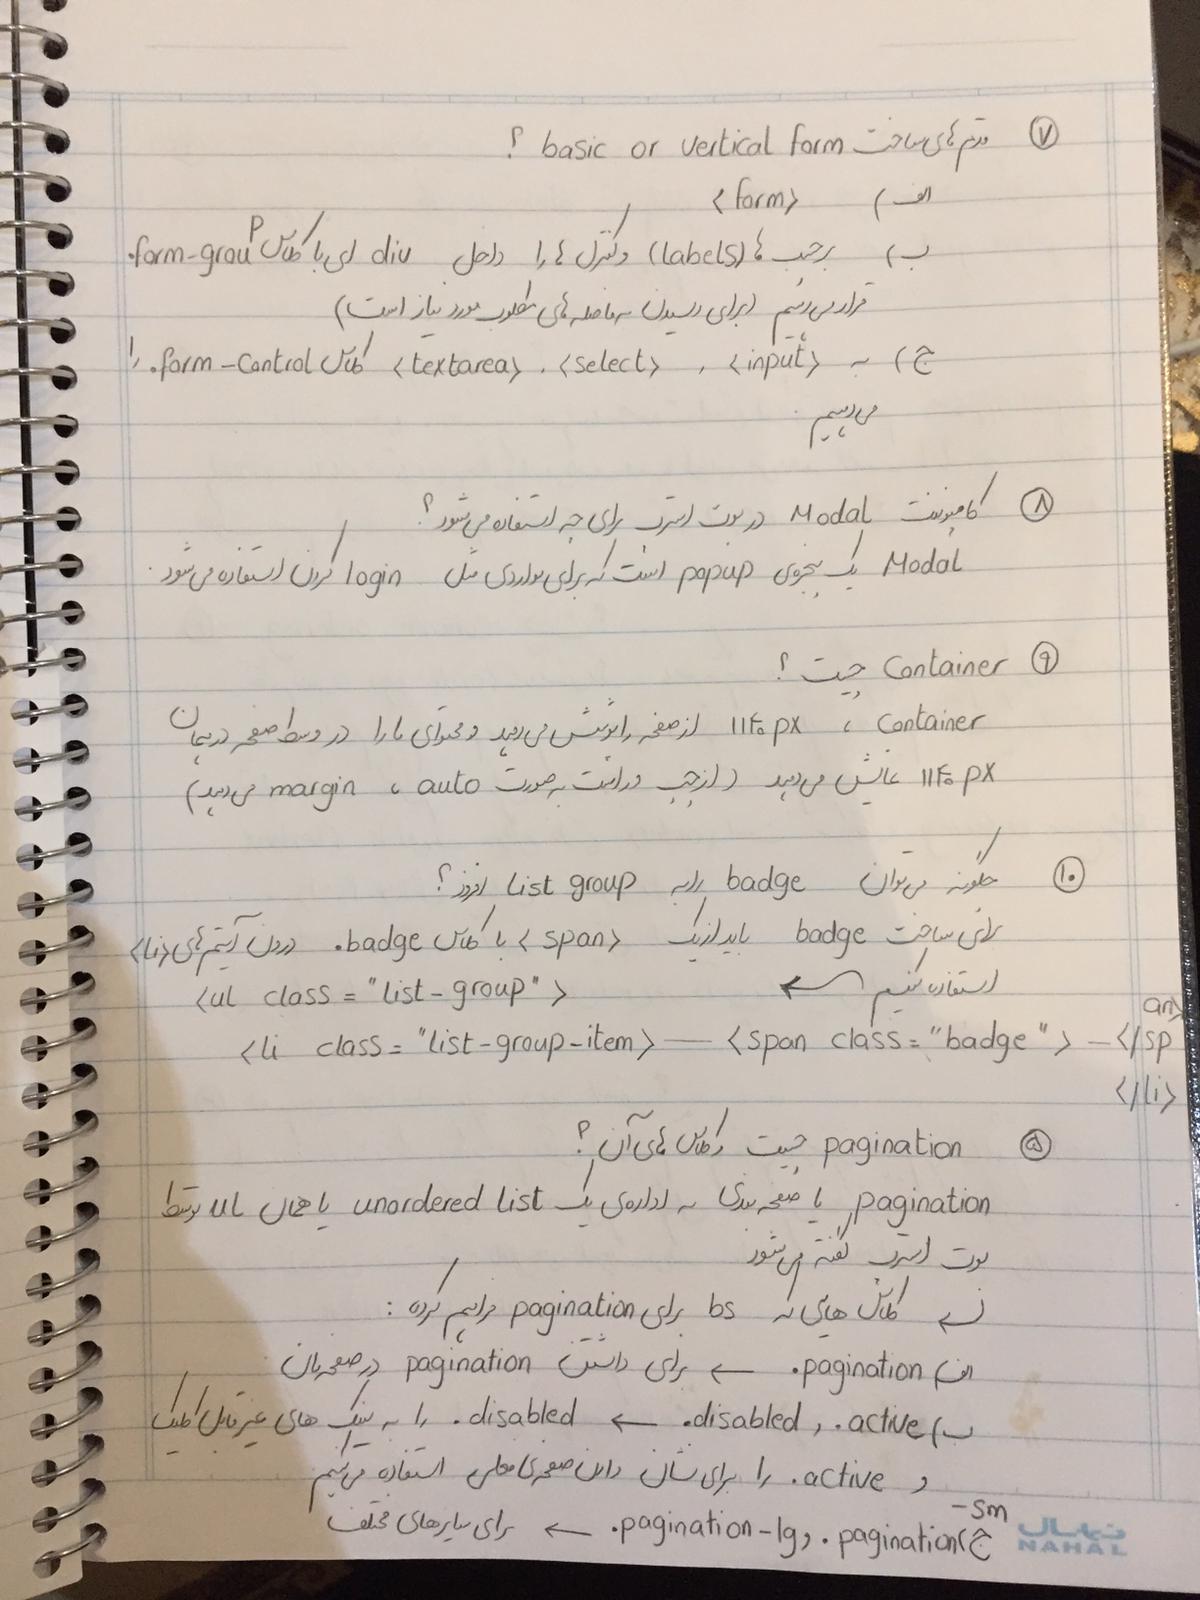 ۷ قدم های ساخت basic or vertical form ؟
الف) <form>
ب) برچسب ها (labels) و کنترل ها را داخل div ای با کلاس .form-group
قرار می دهیم (برای رسیدن به فاصله های مطلوب مورد نیاز است)
ج) به <input> , <select> , <textarea> کلاس .form-control را
می دهیم.
۸ کامپوننت Modal در بوت استرپ برای چه استفاده می شود؟
Modal یک پنجره ی popup است که برای مواردی مثل login کردن استفاده می شود.
۹ Container چیست ؟
Container ، ۱۱۴۰ px از صفحه را پوشش می دهد و محتوای ما را در وسط صفحه در همان
۱۱۴۰ px نمایش می دهد (از چپ و راست به صورت auto ، margin می دهد)
۱۰ چگونه می توان badge را به list group افزود؟
برای ساخت badge باید از یک <span> با کلاس .badge درون آیتم های <li>
استفاده کنیم ←
<ul class="list-group">
<li class="list-group-item> — <span class="badge"> — </span>
</li>
۵ pagination چیست و کلاس های آن ؟
pagination یا صفحه بندی به یک unordered list یا همان ul توسط
بوت استرپ گفته می شود
کلاس هایی که bs برای pagination فراهم کرده :
الف) .pagination ← برای داشتن pagination در صفحه مان
ب) .active و .disabled ← .disabled را به لینک های غیر قابل کلیک
و .active را برای نشان دادن صفحه ی فعلی استفاده می کنیم
ج) .pagination-sm و .pagination-lg ← برای سایزهای مختلف
نهال
NAHAL